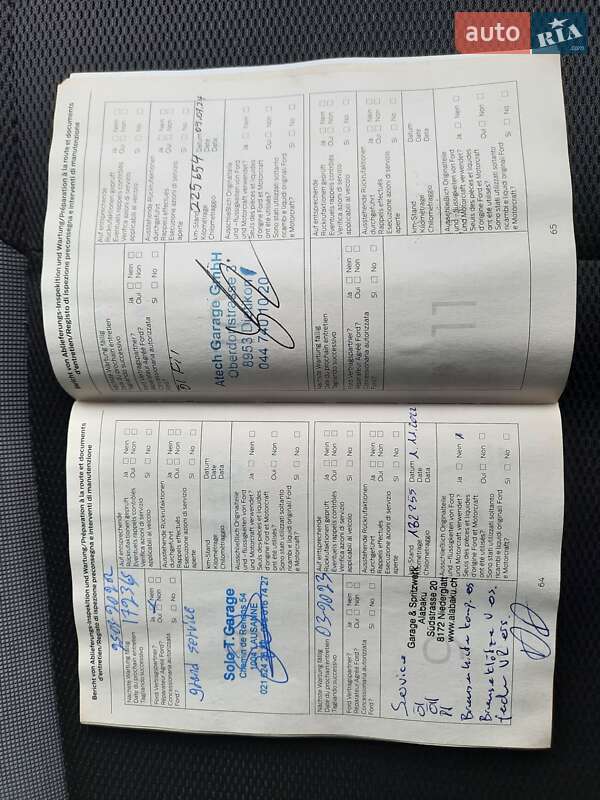 auto RIA.com
Bericht von Ablieferungs-Inspektion und Wartung/Préparation à la route et documents
d'entretien/Registo di ispezione preconsegna e interventi di manutenzione
Nächste Wartung fällig
Date du prochain entretien
Tagliando successivo
Ford Vertragspartner?
Réparateur Agréé Ford?
Concessionaria autorizzata
Ford?
Ja Nein
Oui Non
Si No
grand service
Solo-T Garage
Chemin de Renens 54
1004 LAUSANNE
Auf entsprechende
Rückrufaktionen geprüft
Eventuels rappels contrôlés
Verifica azioni di servizio
applicabili al veicolo
Ja Nein
Oui Non
Si No
Ausstehende Rückrufaktionen
durchgeführt
Rappels effectués
Esecuzione azioni di servizio
aperte
Ja Nein
Oui Non
Si No
km-Stand
Kilométrage
Chilometraggio
Datum
Date
Data
Ausschließlich Originalteile
und -flüssigkeiten von Ford
und Motorcraft verwendet?
Seuls des pièces et liquides
d'origine Ford et Motorcraft
ont été utilisés?
Sono stati utilizzati soltanto
ricambi e liquidi originali Ford
e Motorcraft?
Ja Nein
Oui Non
Si No
Nächste Wartung fällig
Date du prochain entretien
Tagliando successivo
03-2023
Ford Vertragspartner?
Réparateur Agréé Ford?
Concessionaria autorizzata
Ford?
Ja Nein
Oui Non
Si No
Service
Garage & Spritzwerk
Alabaku
Südstrasse 20
8172 Niederglatt
www.alabaku.ch
Auf entsprechende
Rückrufaktionen geprüft
Eventuels rappels contrôlés
Verifica azioni di servizio
applicabili al veicolo
Ja Nein
Oui Non
Si No
Ausstehende Rückrufaktionen
durchgeführt
Rappels effectués
Esecuzione azioni di servizio
aperte
Ja Nein
Oui Non
Si No
km-Stand 182255
Kilométrage
Chilometraggio
Datum 1.11.2022
Date
Data
Ausschließlich Originalteile
und -flüssigkeiten von Ford
und Motorcraft verwendet?
Seuls des pièces et liquides
d'origine Ford et Motorcraft
ont été utilisés?
Sono stati utilizzati soltanto
ricambi e liquidi originali Ford
e Motorcraft?
Ja Nein
Oui Non
Si No
64
Bericht von Ablieferungs-Inspektion und Wartung/Préparation à la route et documents
d'entretien/Registo di ispezione preconsegna e interventi di manutenzione
Nächste Wartung fällig
Date du prochain entretien
Tagliando successivo
Ford Vertragspartner?
Réparateur Agréé Ford?
Concessionaria autorizzata
Ja Nein
Oui Non
Si No
Atech Garage GmbH
Oberdorfstrasse 3
8953 Dietikon
044 740 10 20
Auf entsprechende
Rückrufaktionen geprüft
Eventuels rappels contrôlés
Verifica azioni di servizio
applicabili al veicolo
Ja Nein
Oui Non
Si No
Ausstehende Rückrufaktionen
durchgeführt
Rappels effectués
Esecuzione azioni di servizio
aperte
Ja Nein
Oui Non
Si No
km-Stand 225654
Kilométrage
Chilometraggio
Datum 09.01.24
Date
Data
Ausschließlich Originalteile
und -flüssigkeiten von Ford
und Motorcraft verwendet?
Seuls des pièces et liquides
d'origine Ford et Motorcraft
ont été utilisés?
Sono stati utilizzati soltanto
ricambi e liquidi originali Ford
e Motorcraft?
Ja Nein
Oui Non
Si No
Nächste Wartung fällig
Date du prochain entretien
Tagliando successivo
Ford Vertragspartner?
Réparateur Agréé Ford?
Concessionaria autorizzata
Ford?
Ja Nein
Oui Non
Si No
11
Auf entsprechende
Rückrufaktionen geprüft
Eventuels rappels contrôlés
Verifica azioni di servizio
applicabili al veicolo
Ja Nein
Oui Non
Si No
Ausstehende Rückrufaktionen
durchgeführt
Rappels effectués
Esecuzione azioni di servizio
aperte
Ja Nein
Oui Non
Si No
km-Stand
Kilométrage
Chilometraggio
Datum
Date
Data
Ausschließlich Originalteile
und -flüssigkeiten von Ford
und Motorcraft verwendet?
Seuls des pièces et liquides
d'origine Ford et Motorcraft
ont été utilisés?
Sono stati utilizzati soltanto
ricambi e liquidi originali Ford
e Motorcraft?
Ja Nein
Oui Non
Si No
65